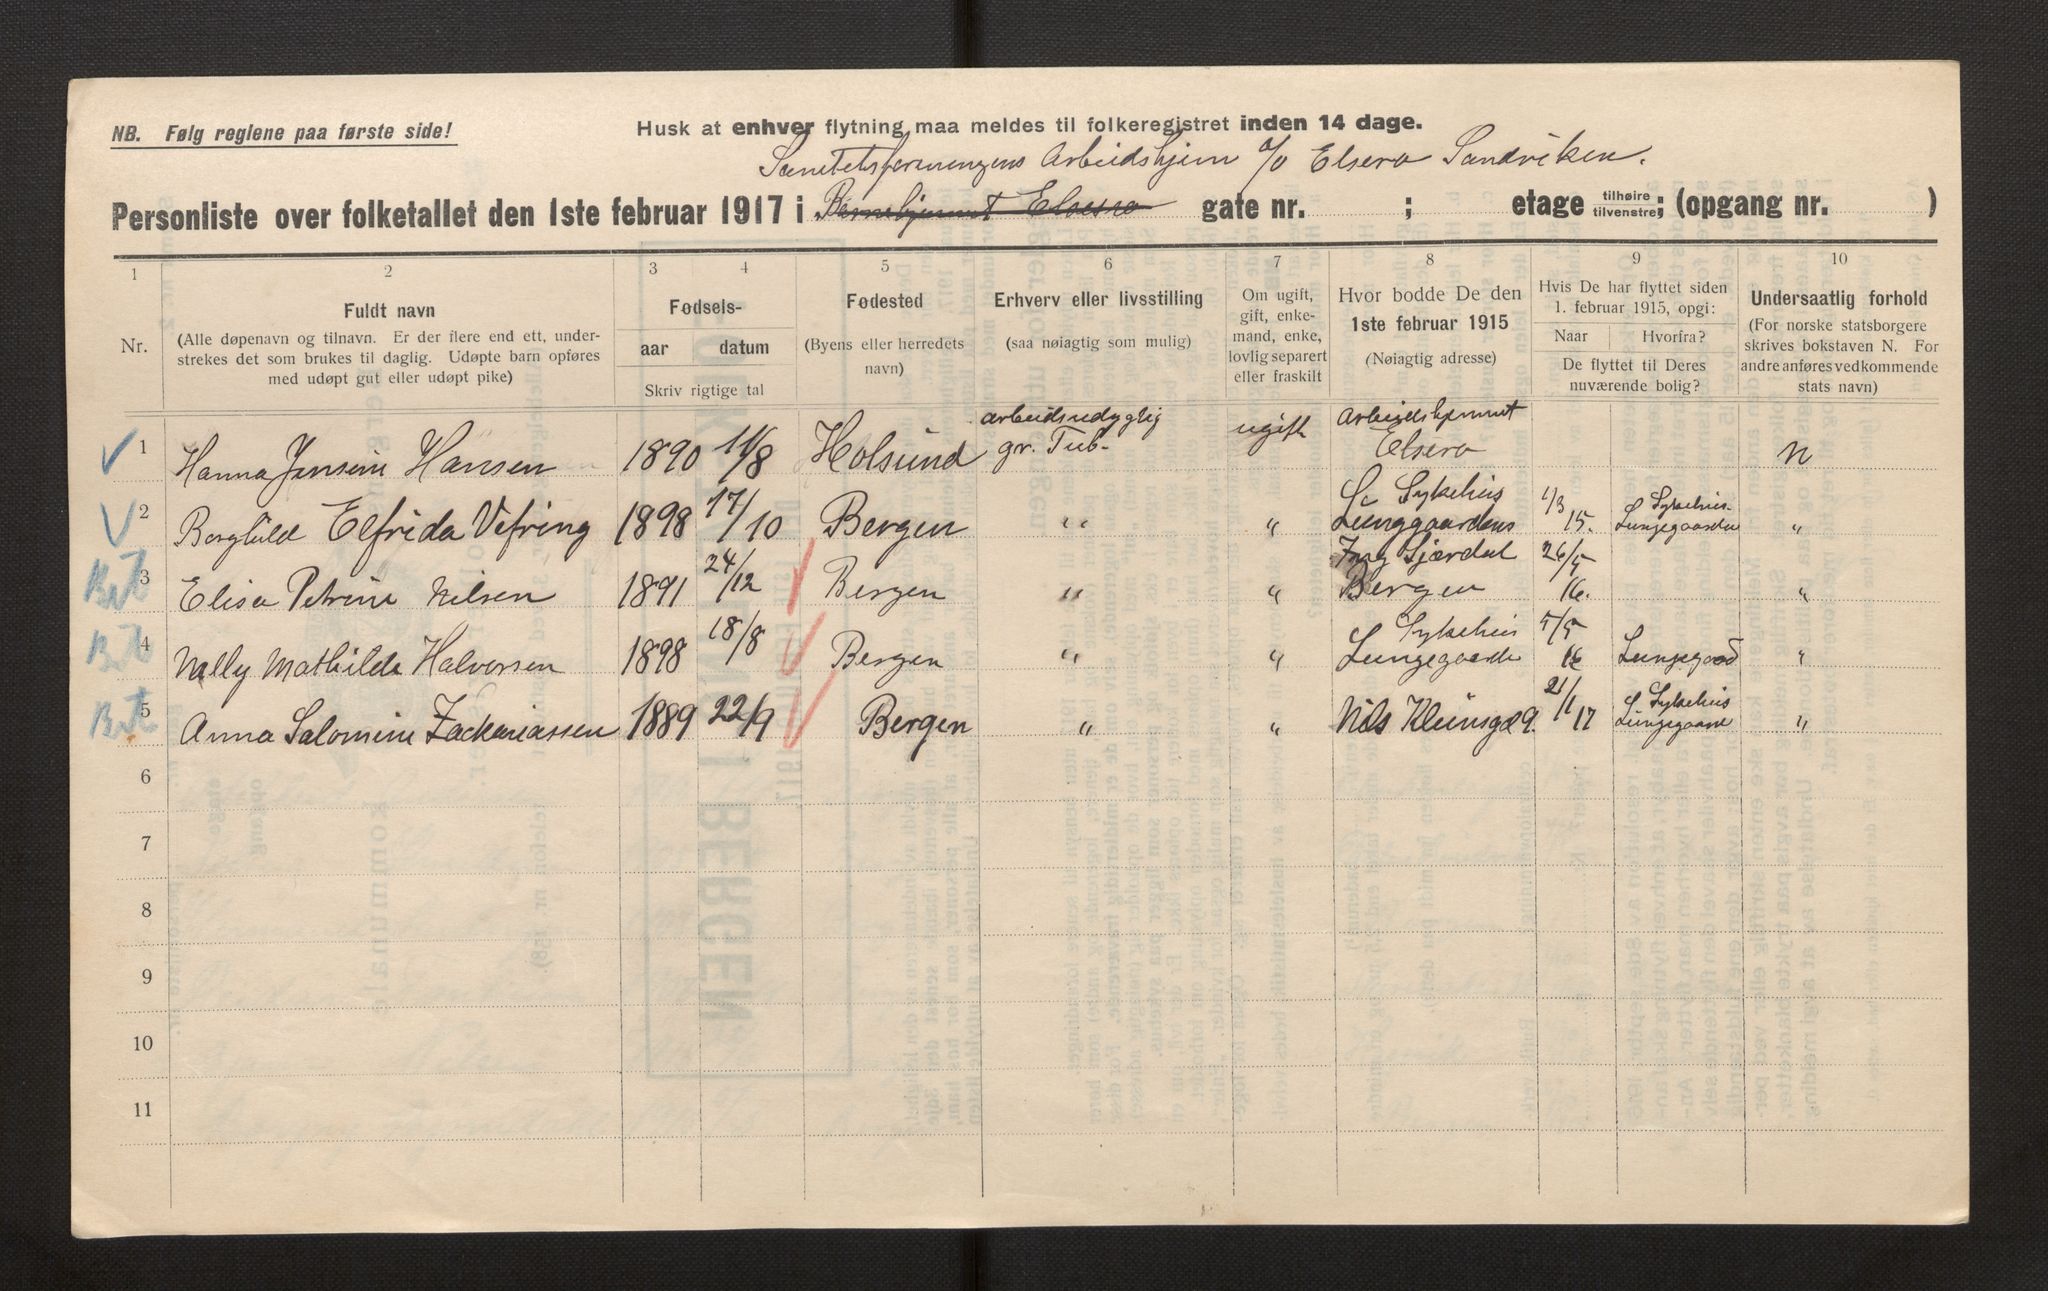 NB. Følg reglene paa første side!
Husk at enhver flytning maa meldes til folkeregistret inden 14 dage.
Sanitetsforeningens Arbeidshjem c/o Elsero Sandviken.
Personliste over folketallet den 1ste februar 1917 i Barnehjemmet Elsesro gate nr. ; etage tilhøire/tilvenstre; (opgang nr. )
1 2 3 4 5 6 7 8 9 10
Nr.
Fuldt navn
(Alle døpenavn og tilnavn. Er der flere end ett, under-
strekes det som brukes til daglig. Udøpte barn opføres
med udøpt gut eller udøpt pike)
Fødsels-
aar datum
Skriv rigtige tal
Fødested
(Byens eller herredets
navn)
Erhverv eller livsstilling
(saa nøiagtig som mulig)
Om ugift,
gift, enke-
mand, enke,
lovlig separert
eller fraskilt
Hvor bodde De den
1ste februar 1915
(Nøiagtig adresse)
Hvis De har flyttet siden
1. februar 1915, opgi:
Naar Hvorfra?
De flyttet til Deres
nuværende bolig?
Undersaatlig forhold
(For norske statsborgere
skrives bokstaven N. For
andre anføres vedkommende
stats navn)
1 Hanna Jensine Hansen 1890 11/8 Holsund arbeidsudyglig gr. Tub- ugift Arbeidshjemmet Elsero N
2 Borghild Elfrida Vefring 1898 17/10 Bergen " " Sykehus Lunggaardens 1/3 15. Sykehus Lungegaarden "
3 Elisa Petrine Nilsen 1891 24/12 Bergen " " Bergen 26/5 16. "
4 Nelly Mathilde Halvorsen 1898 18/8 Bergen " " Sykehus Lungegaarde 5/5 16 Lungegaard "
5 Anna Salomine Zackariassen 1889 22/9 Bergen " " Nils Kleimsgd 9. 21/1 17 Sykehus Lungegaard "
6
7
8
9
10
11